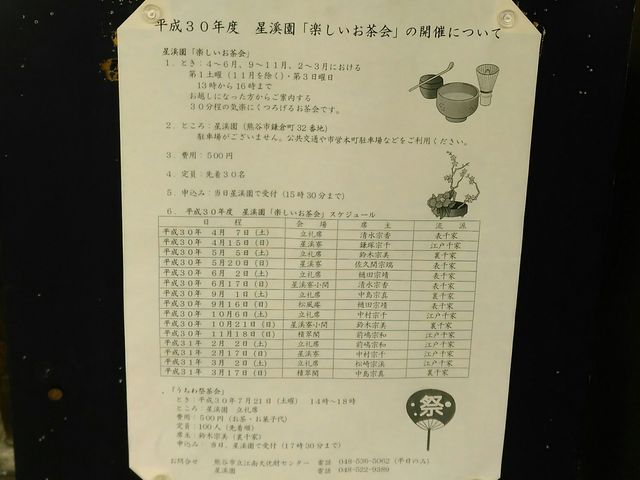 平成30年度　星溪園「楽しいお茶会」の開催について
星溪園「楽しいお茶会」
1．とき：4～6月、9～11月、2～3月における
第1土曜（11月を除く）・第3日曜日
13時から16時まで
お越しになった方からご案内する
30分程の気楽にくつろげるお茶会です。
2．ところ：星溪園（熊谷市鎌倉町32番地）
駐車場がございません。公共交通や市営本町駐車場などをご利用ください。
3．費用：500円
4．定員：先着30名
5．申込み：当日星溪園で受付（15時30分まで）
6．平成30年度　星溪園「楽しいお茶会」スケジュール
日　程　会　場　席　主　流　派
平成30年　4月　7日（土）　立礼席　清水宗香　表千家
平成30年　4月15日（日）　星溪寮　鎌塚宗千　江戸千家
平成30年　5月　5日（土）　立礼席　鈴木宗美　裏千家
平成30年　5月20日（日）　星溪寮　佐久間宗瑞　表千家
平成30年　6月　2日（土）　立礼席　樋田宗靖　表千家
平成30年　6月17日（日）　星溪寮小間　清水宗香　表千家
平成30年　9月　1日（土）　立礼席　中島宗真　裏千家
平成30年　9月16日（日）　松風庵　樋田宗靖　表千家
平成30年　10月6日（土）　立礼席　中村宗千　江戸千家
平成30年　10月21日（日）　星溪寮小間　鈴木宗美　裏千家
平成30年　11月18日（日）　積翠閣　前嶋宗和　江戸千家
平成31年　2月　2日（土）　立礼席　前嶋宗和　江戸千家
平成31年　2月17日（日）　星溪寮　中村宗千　江戸千家
平成31年　3月　2日（土）　立礼席　松崎宗渓　江戸千家
平成31年　3月17日（日）　積翠閣　中島宗真　裏千家
「うちわ祭茶会」
とき：平成30年7月21日（土曜）　14時～18時
ところ：星溪園　立礼席
費用：500円（お茶・お菓子代）
定員：100人（先着順）
席主：鈴木宗美（裏千家）
申込み：当日、星溪園で受付（17時30分まで）
祭
お問合せ　熊谷市立江南文化財センター　電話　048-536-5062（平日のみ）
星溪園　電話　048-522-9389